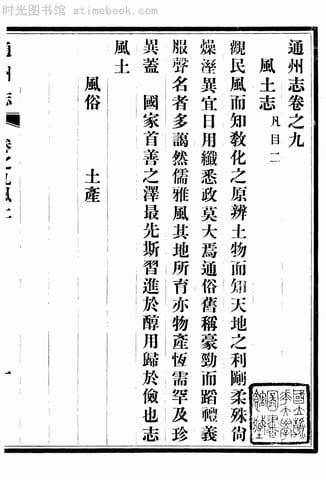 时光图书馆 - atimebook.com
通州志卷之九
風土志 凡目二
觀民風而知敎化之原辨土物而知天地之利剛柔殊尙
燥溼異宜日用纖悉政莫大焉通俗舊稱豪勁而蹈禮義
服聲名者多藹然儒雅風其地所育亦物產恆需罕及珍
異蓋 國家首善之澤最先斯習進於醇用歸於儉也志
風土
風俗 土產
通州志
卷之九風土
一